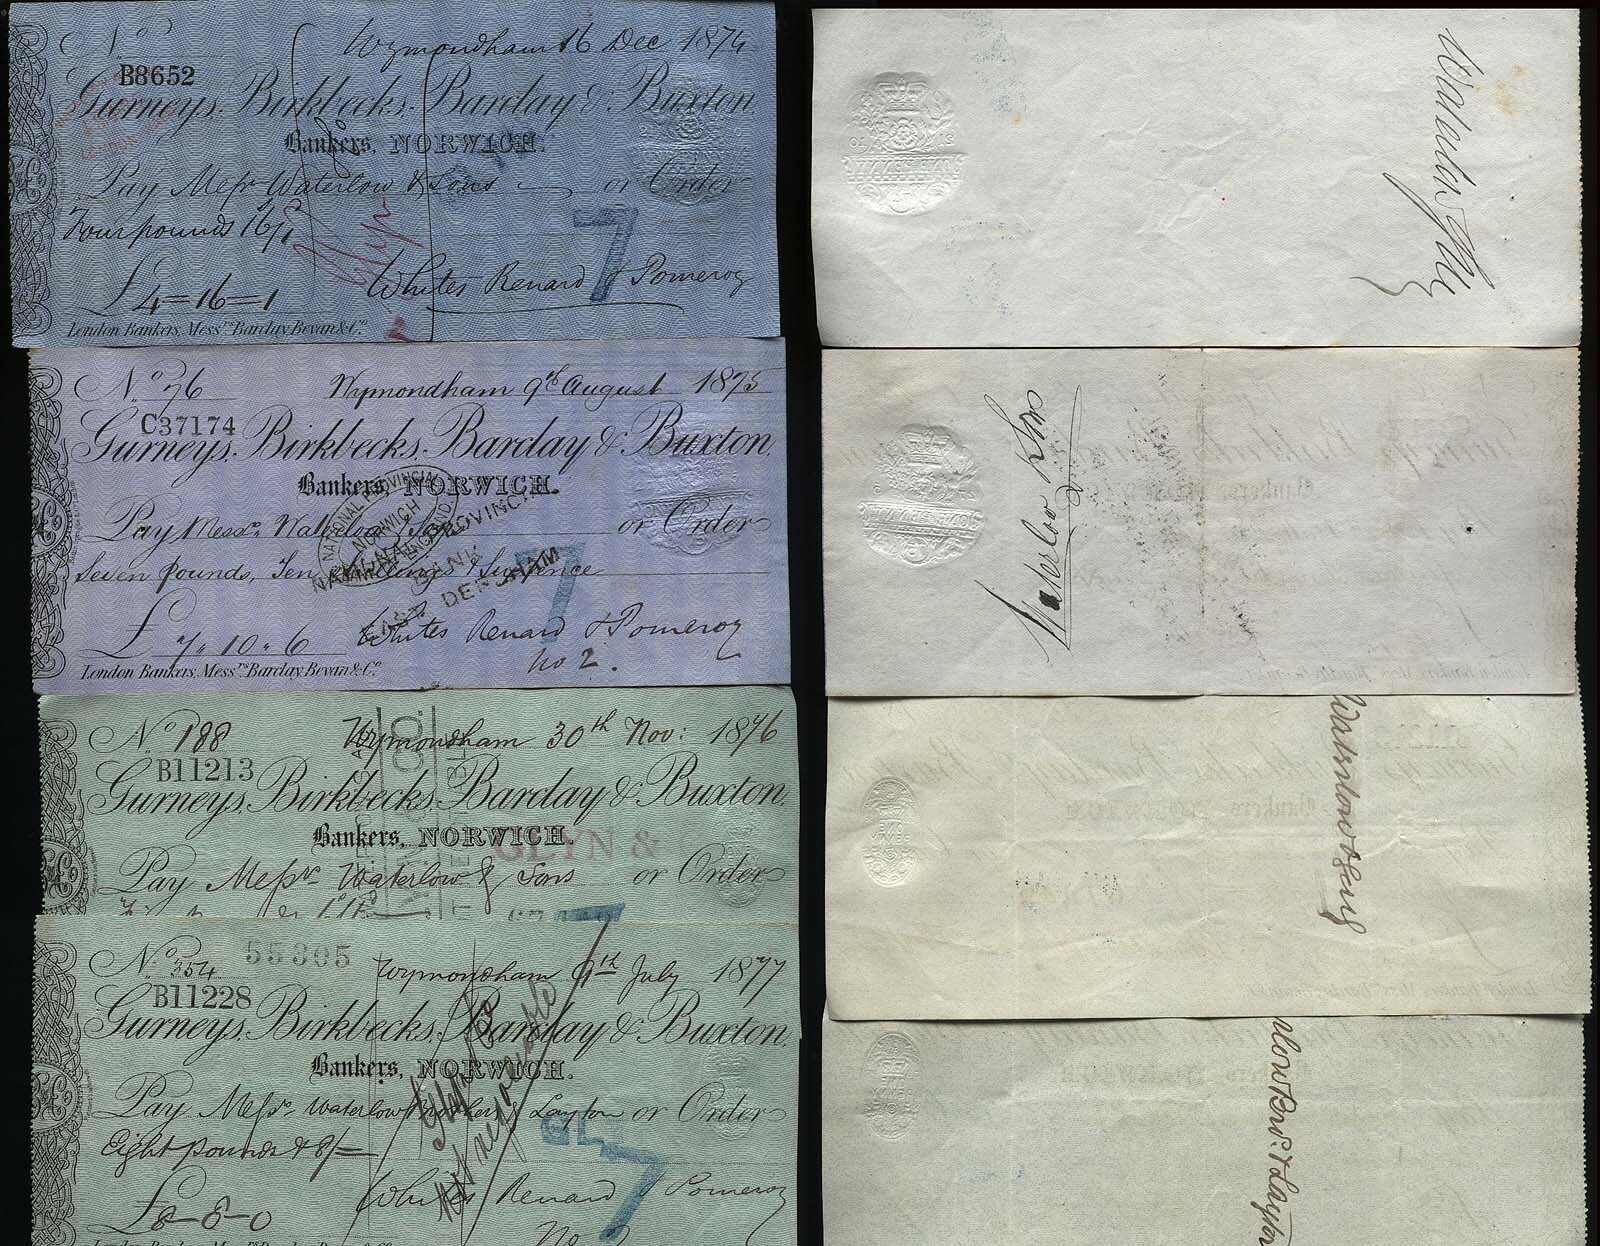 No
Wymondham 16 Dec 1874
B8652
Gurneys, Birkbecks, Barclay & Buxton
Bankers, NORWICH.
Pay Messrs Waterlow & Sons or Order
Four pounds 16/1
£4=16=1
Whites Renard & Pomeroy
7
London Bankers, Messrs Barclay Bevan & Co.
No 76
Wymondham 9th August 1875
C37174
Gurneys, Birkbecks, Barclay & Buxton
Bankers, NORWICH.
Pay Messrs Waterlow & Sons or Order
Seven pounds, Ten shillings & Sixpence
NATIONAL PROVINCIAL
BANK
EAST DEREHAM
7
£7.10.6
Whites Renard & Pomeroy
No 2.
London Bankers, Messrs Barclay Bevan & Co.
No 188
Wymondham 30th Nov: 1876
B11213
Gurneys, Birkbecks, Barclay & Buxton
Bankers, NORWICH.
GLYN &
Pay Messrs Waterlow & Sons or Order
No 354
55305
Wymondham 9th July 1877
B11228
Gurneys, Birkbecks, Barclay & Buxton
Bankers, NORWICH.
Pay Messrs Waterlow Brothers & Layton or Order
Eight pounds & 8/=
GL
7
£8-8-0
Whites Renard & Pomeroy
Waterlow & Sons
Waterlow & Sons